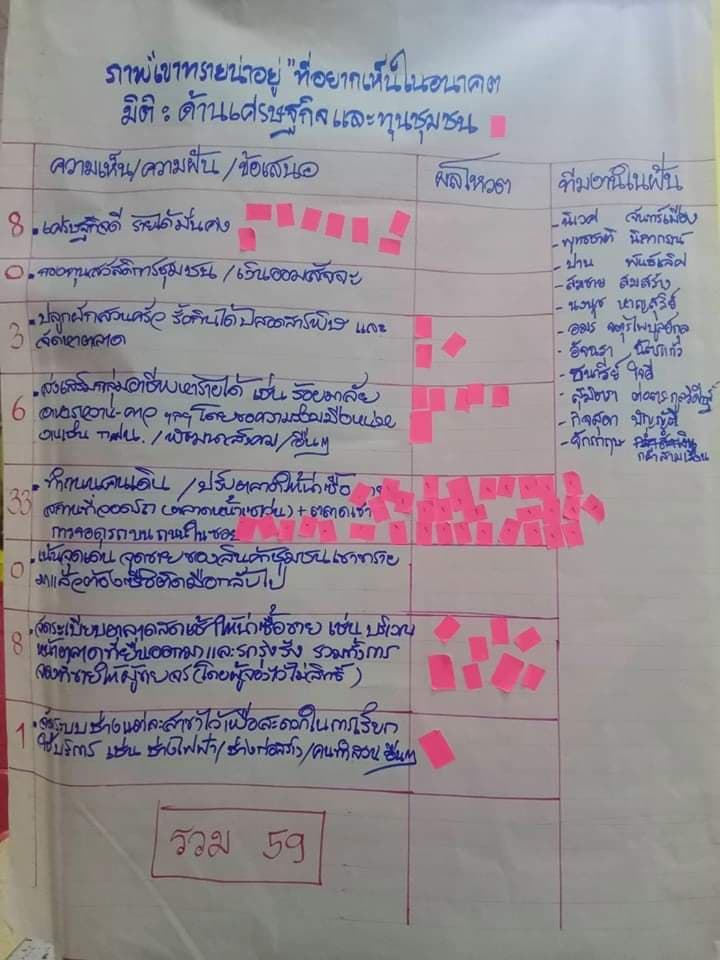 ภาพ "เขาทรายน่าอยู่" ที่อยากเห็นในอนาคต
มิติ : ด้านเศรษฐกิจและทุนชุมชน
ความเห็น/ความฝัน/ข้อเสนอ
ผลโหวต
ทีมงานในฝัน
8 . เศรษฐกิจดี รายได้มั่นคง
0 . กองทุนสวัสดิการชุมชน / เงินออมสัจจะ
3 . ปลูกผักสวนครัว รั้วกินได้ ปลอดสารพิษ และ
จัดหาตลาด
6 . ส่งเสริมกลุ่มอาชีพ หารายได้ เช่น ร้อยมาลัย
อาหารหวาน-คาว ฯลฯ โดยขอความร่วมมือหน่วย
งานเช่น กศน. / พัฒนาสังคม / อื่นๆ
33 . ทำถนนคนเดิน / ปรับตลาดให้น่าซื้อ
สถานที่จอดรถ (ตลาดหน้าเซเว่น) + ตลาดเช้า
การจอดรถบนถนนในซอย
0 . เน้นจุดเด่น จุดขายของสินค้าชุมชนเขาทราย
มาแล้วต้องซื้อติดมือกลับไป
8 . จัดระเบียบตลาดสดเช้า ให้น่าซื้อขาย เช่น บริเวณ
หน้าตลาดที่ยื่นออกมาและรกรุงรัง รวมทั้งการ
จองที่ขายให้ผู้ขายจร (โดยผู้จองไว้ไม่มีสิทธิ์)
1 . จัดระบบช่างแต่ละสาขาไว้เพื่อสะดวกในการเรียก
ใช้บริการ เช่น ช่างไฟฟ้า / ช่างก่อสร้าง / คนทำสวน อื่นๆ
รวม 59
- นิเวศ จันทร์เมือง
- พุทธชาติ
- ปาน พันธ์เลิศ
- สมชาย สมสร้าง
- นงนุช
- อมร
- อัจฉรา
- ชนาวีย์ ใจดี
- สุมิตรา
- กิจสุดา
- จักรกฤษ